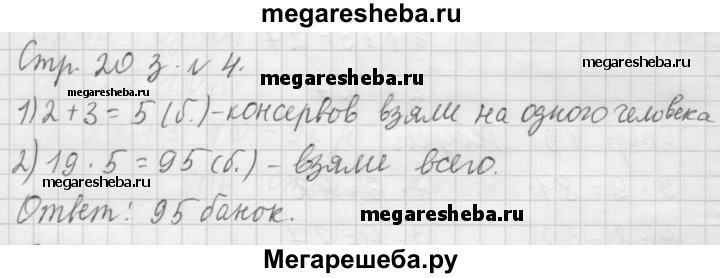 megaresheba.ru
Стр. 20 з. № 4.
megaresheba.ru
megaresheba.ru
megaresheba.ru
1) 2 + 3 = 5 (б.) - консервов взяли на одного человека
2) 19 · 5 = 95 (б.) - взяли всего.
megaresheba.ru
Ответ: 95 банок.
megaresheba.ru
Мегарешеба.ру